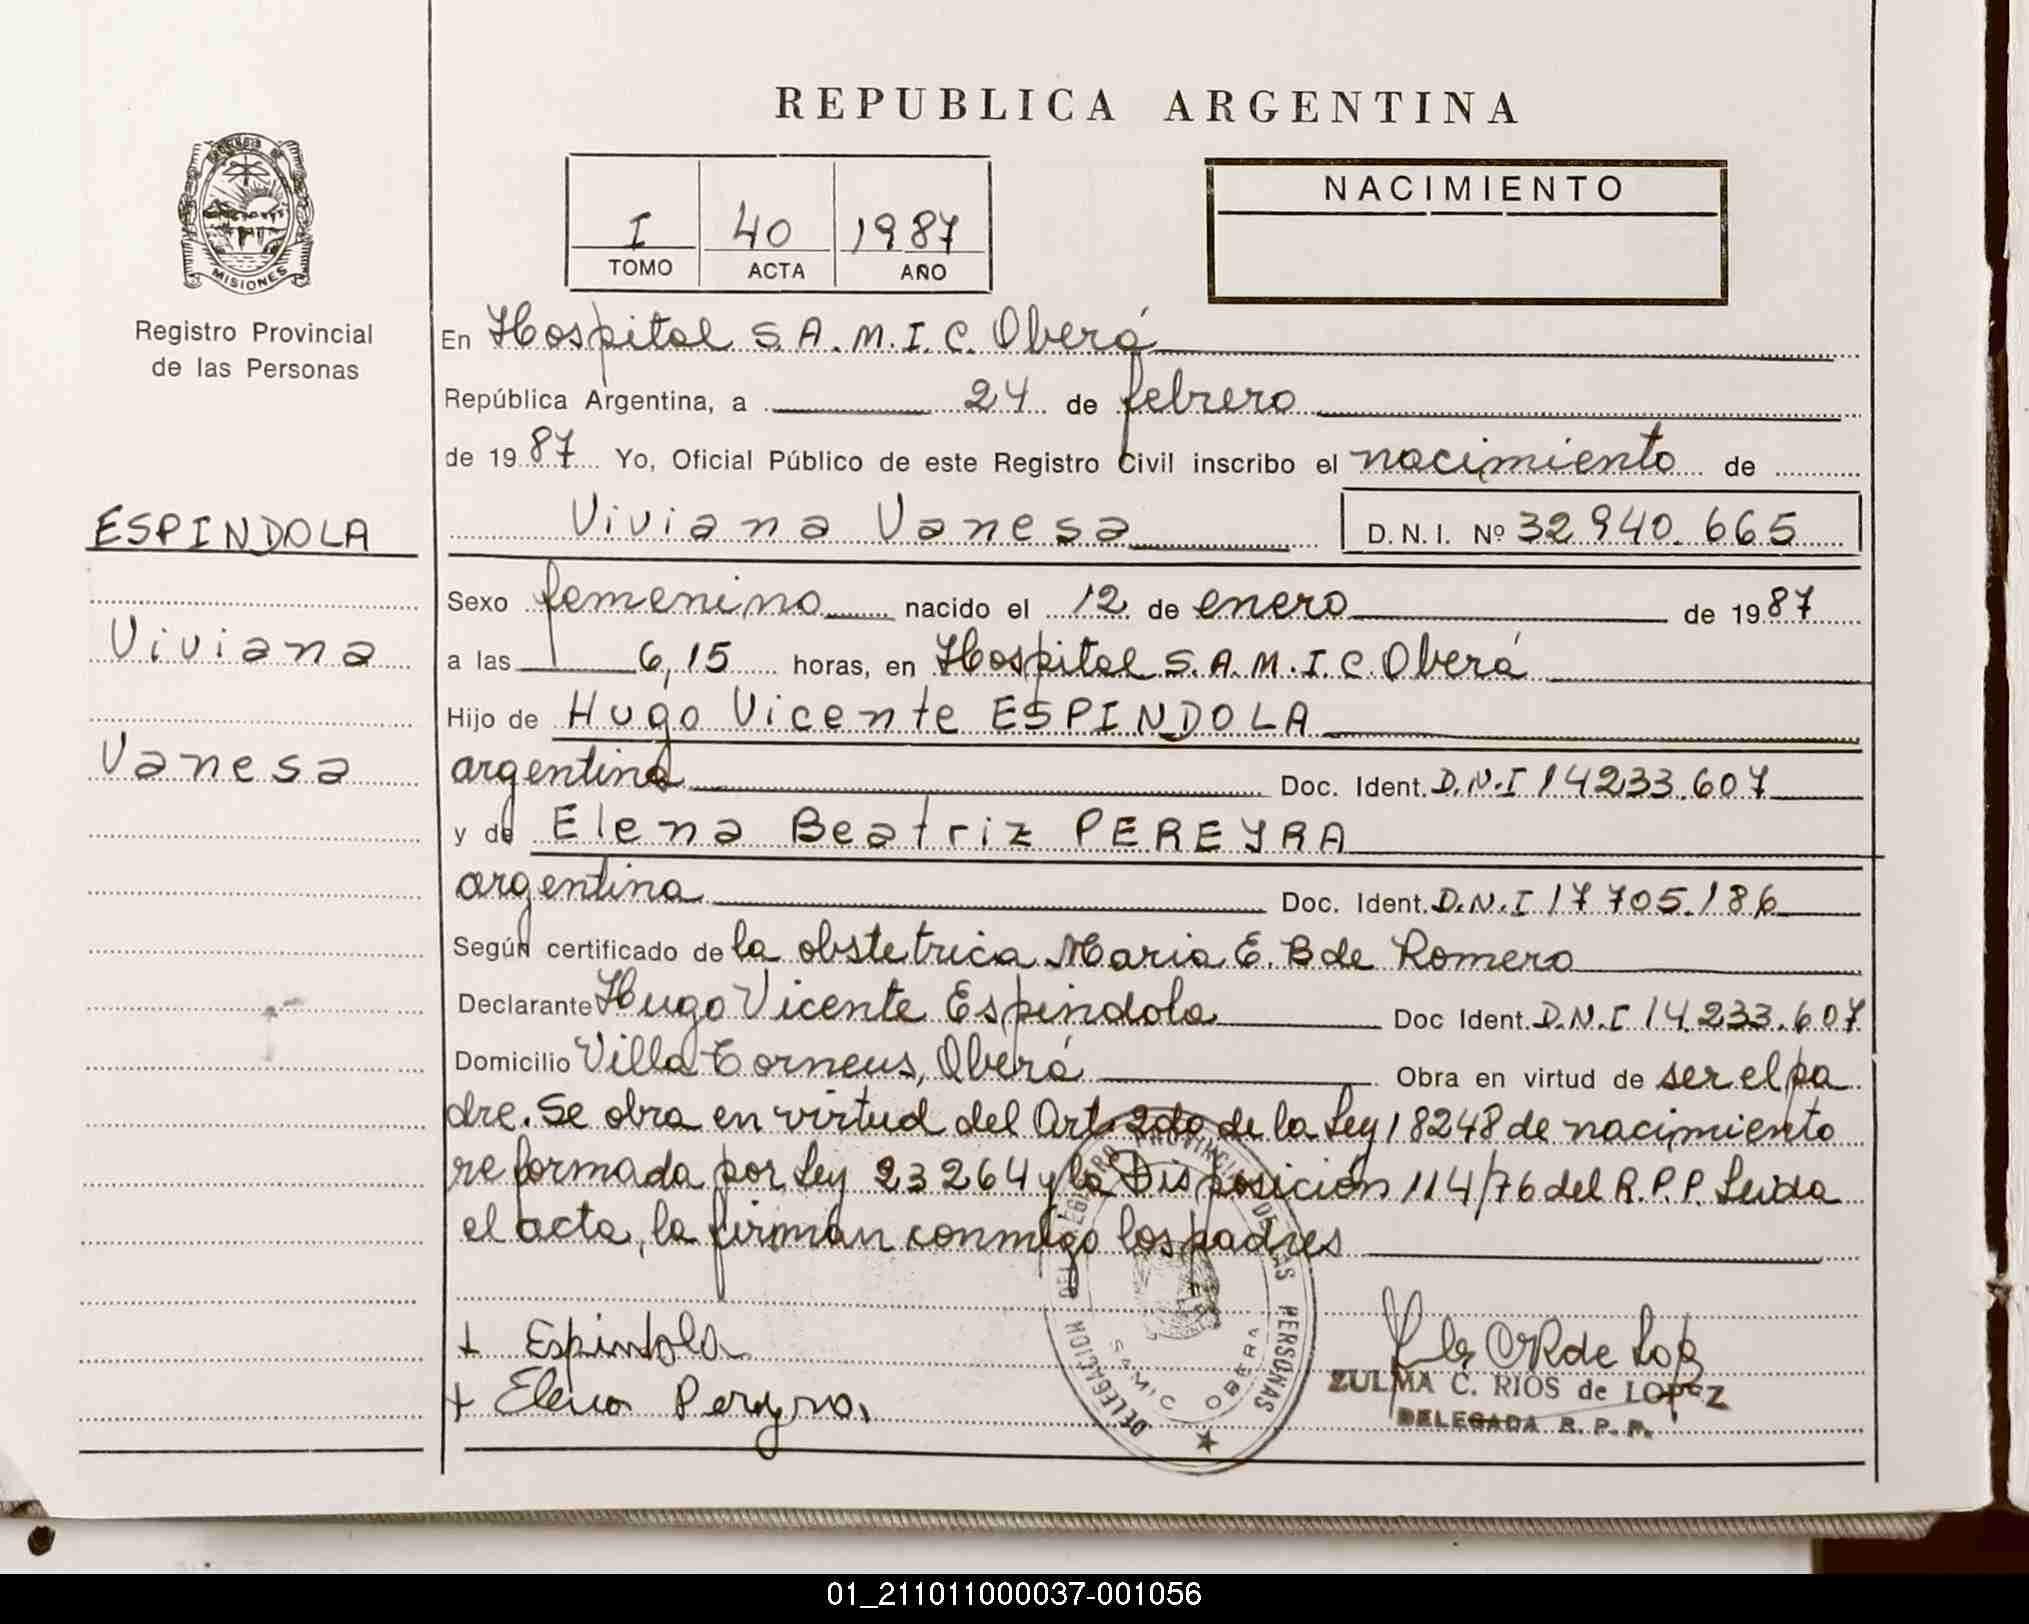 REPUBLICA ARGENTINA
MISIONES
Registro Provincial
de las Personas
I 40 1987
TOMO ACTA AÑO
NACIMIENTO
En Hospital S.A.M.I.C. Oberá
República Argentina, a 24 de febrero
de 1987 Yo, Oficial Público de este Registro Civil inscribo el nacimiento de
Viviana Vanesa D.N.I. Nº 32.940.665
ESPINDOLA
Viviana
Vanesa
Sexo femenino nacido el 12 de enero de 1987
a las 6,15 horas, en Hospital S.A.M.I.C. Oberá
Hijo de Hugo Vicente ESPINDOLA
argentino Doc. Ident. D.N.I 14233.607
y de Elena Beatriz PEREYRA
argentina Doc. Ident. D.N.I 17705.186
Según certificado de la obstetrica Maria E. B de Romero
Declarante Hugo Vicente Espindola Doc Ident. D.N.I 14.233.607
Domicilio Villa Torneus, Oberá Obra en virtud de ser el pa
dre. Se obra en virtud del Art. 2do de la Ley 18248 de nacimiento
reformada por Ley 23264 y la Disposición 114/76 del R.P.P. Leida
el acta, la firman conmigo los padres
+ Espindola
+ Elena Pereyra
DELEGACION DEL REGISTRO PROVINCIAL DE LAS PERSONAS
SAMIC OBERA
ZULMA C. RIOS de LOPEZ
DELEGADA R.P.P.
01_211011000037-001056